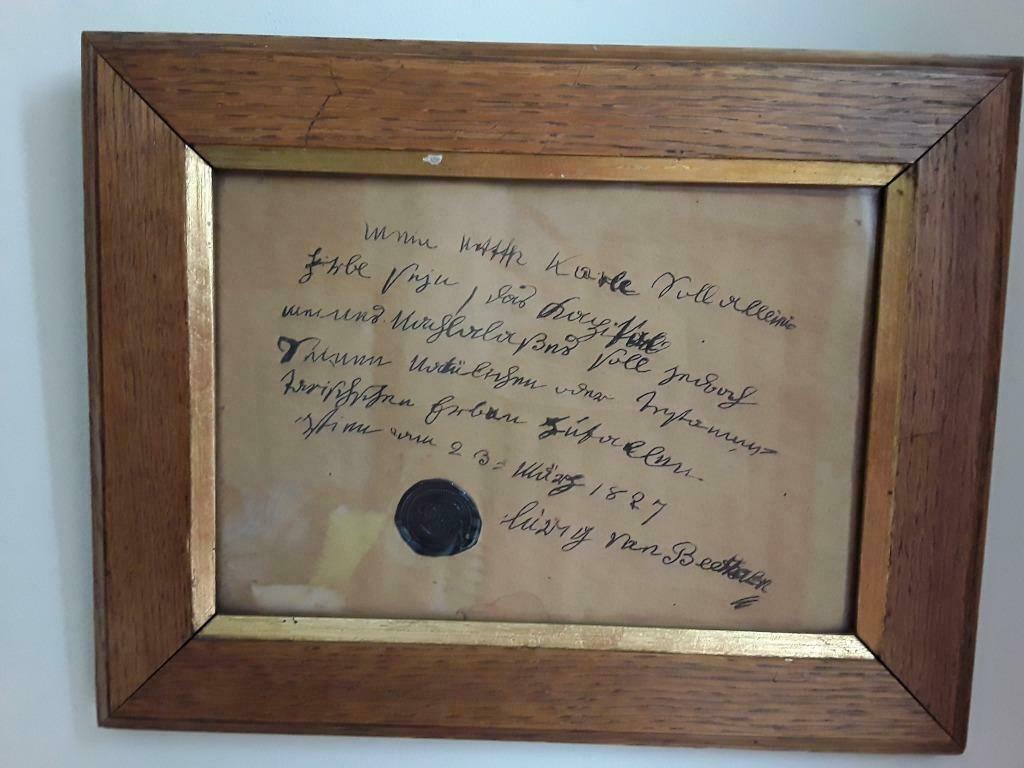 mein Neffe Karle Soll alleini
Erbe seyn, das Kapital
meines Nachlalaßes soll jedoch
Seinen natülichen oder testamen=
tarischschen Erben zufallen.
Wien am 23= März 1827
luwig van Beethoven